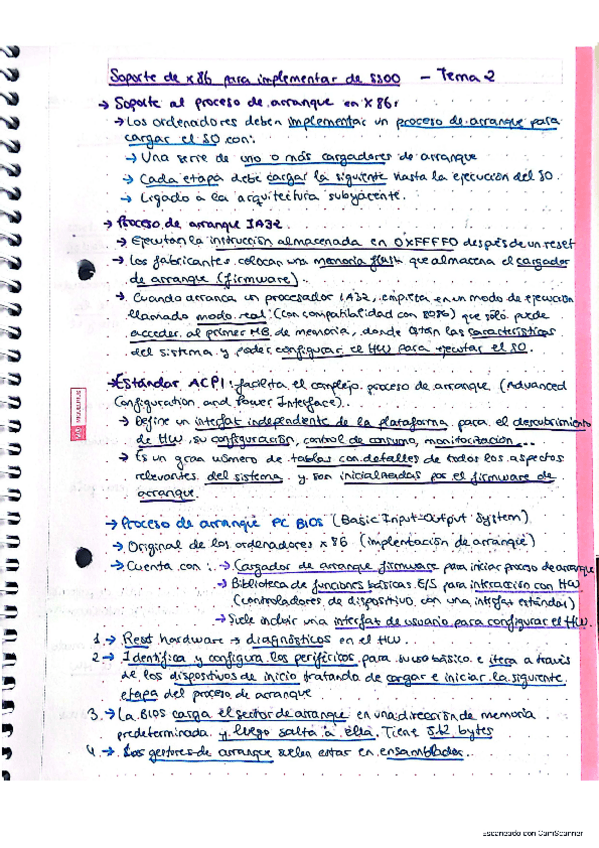 Soporte de x86 para implementar de SSOO - Tema 2
→ Soporte al proceso de arranque en X86:
→ Los ordenadores deben implementar un proceso de arranque para
cargar el SO con:
→ Una serie de uno o más cargadores de arranque
→ Cada etapa debe cargar la siguiente hasta la ejecución del SO.
→ Ligado a la arquitectura subyacente.
→ Proceso de arranque IA32.
→ Ejecutan la instrucción almacenada en 0XFFFF0 después de un reset
→ Los fabricantes colocan una memoria flash que almacena el cargador
de arranque (firmware).
→ Cuando arranca un procesador IA32, empieza en un modo de ejecución
llamado modo real (con compatibilidad con 8086) que sólo puede
acceder al primer MB de memoria, donde están las características
del sistema y poder configurar el HW para ejecutar el SO.
→ Estándar ACPI: facilita el complejo proceso de arranque (Advanced
Configuration and Power Interface).
→ Define un interfaz independiente de la plataforma para el descubrimiento
de HW, su configuración, control de consumo, monitorización...
→ Es un gran número de tablas con detalles de todos los aspectos
relevantes del sistema y son inicializadas por el firmware de
arranque
→ Proceso de arranque PC BIOS (Basic Input-Output System)
→ Original de los ordenadores x86 (implentación de arranque)
→ Cuenta con: → Cargador de arranque firmware para iniciar proceso de arranque
→ Biblioteca de funciones básicas E/S para interacción con HW
(controladores de dispositivo con una interfaz estándar)
→ Suele incluir una interfaz de usuario para configurar el HW.
1. → Reset hardware → diagnósticos en el HW.
2 → Identifica y configura los periféricos para su uso básico e itera a través
de los dispositivos de inicio tratando de cargar e iniciar la siguiente
etapa del proceso de arranque
3. → La BIOS carga el sector de arranque en una dirección de memoria
predeterminada y luego salta a ella. Tiene 512 bytes
4. → Los gestores de arranque suelen estar en ensamblador.
Escaneado con CamScanner